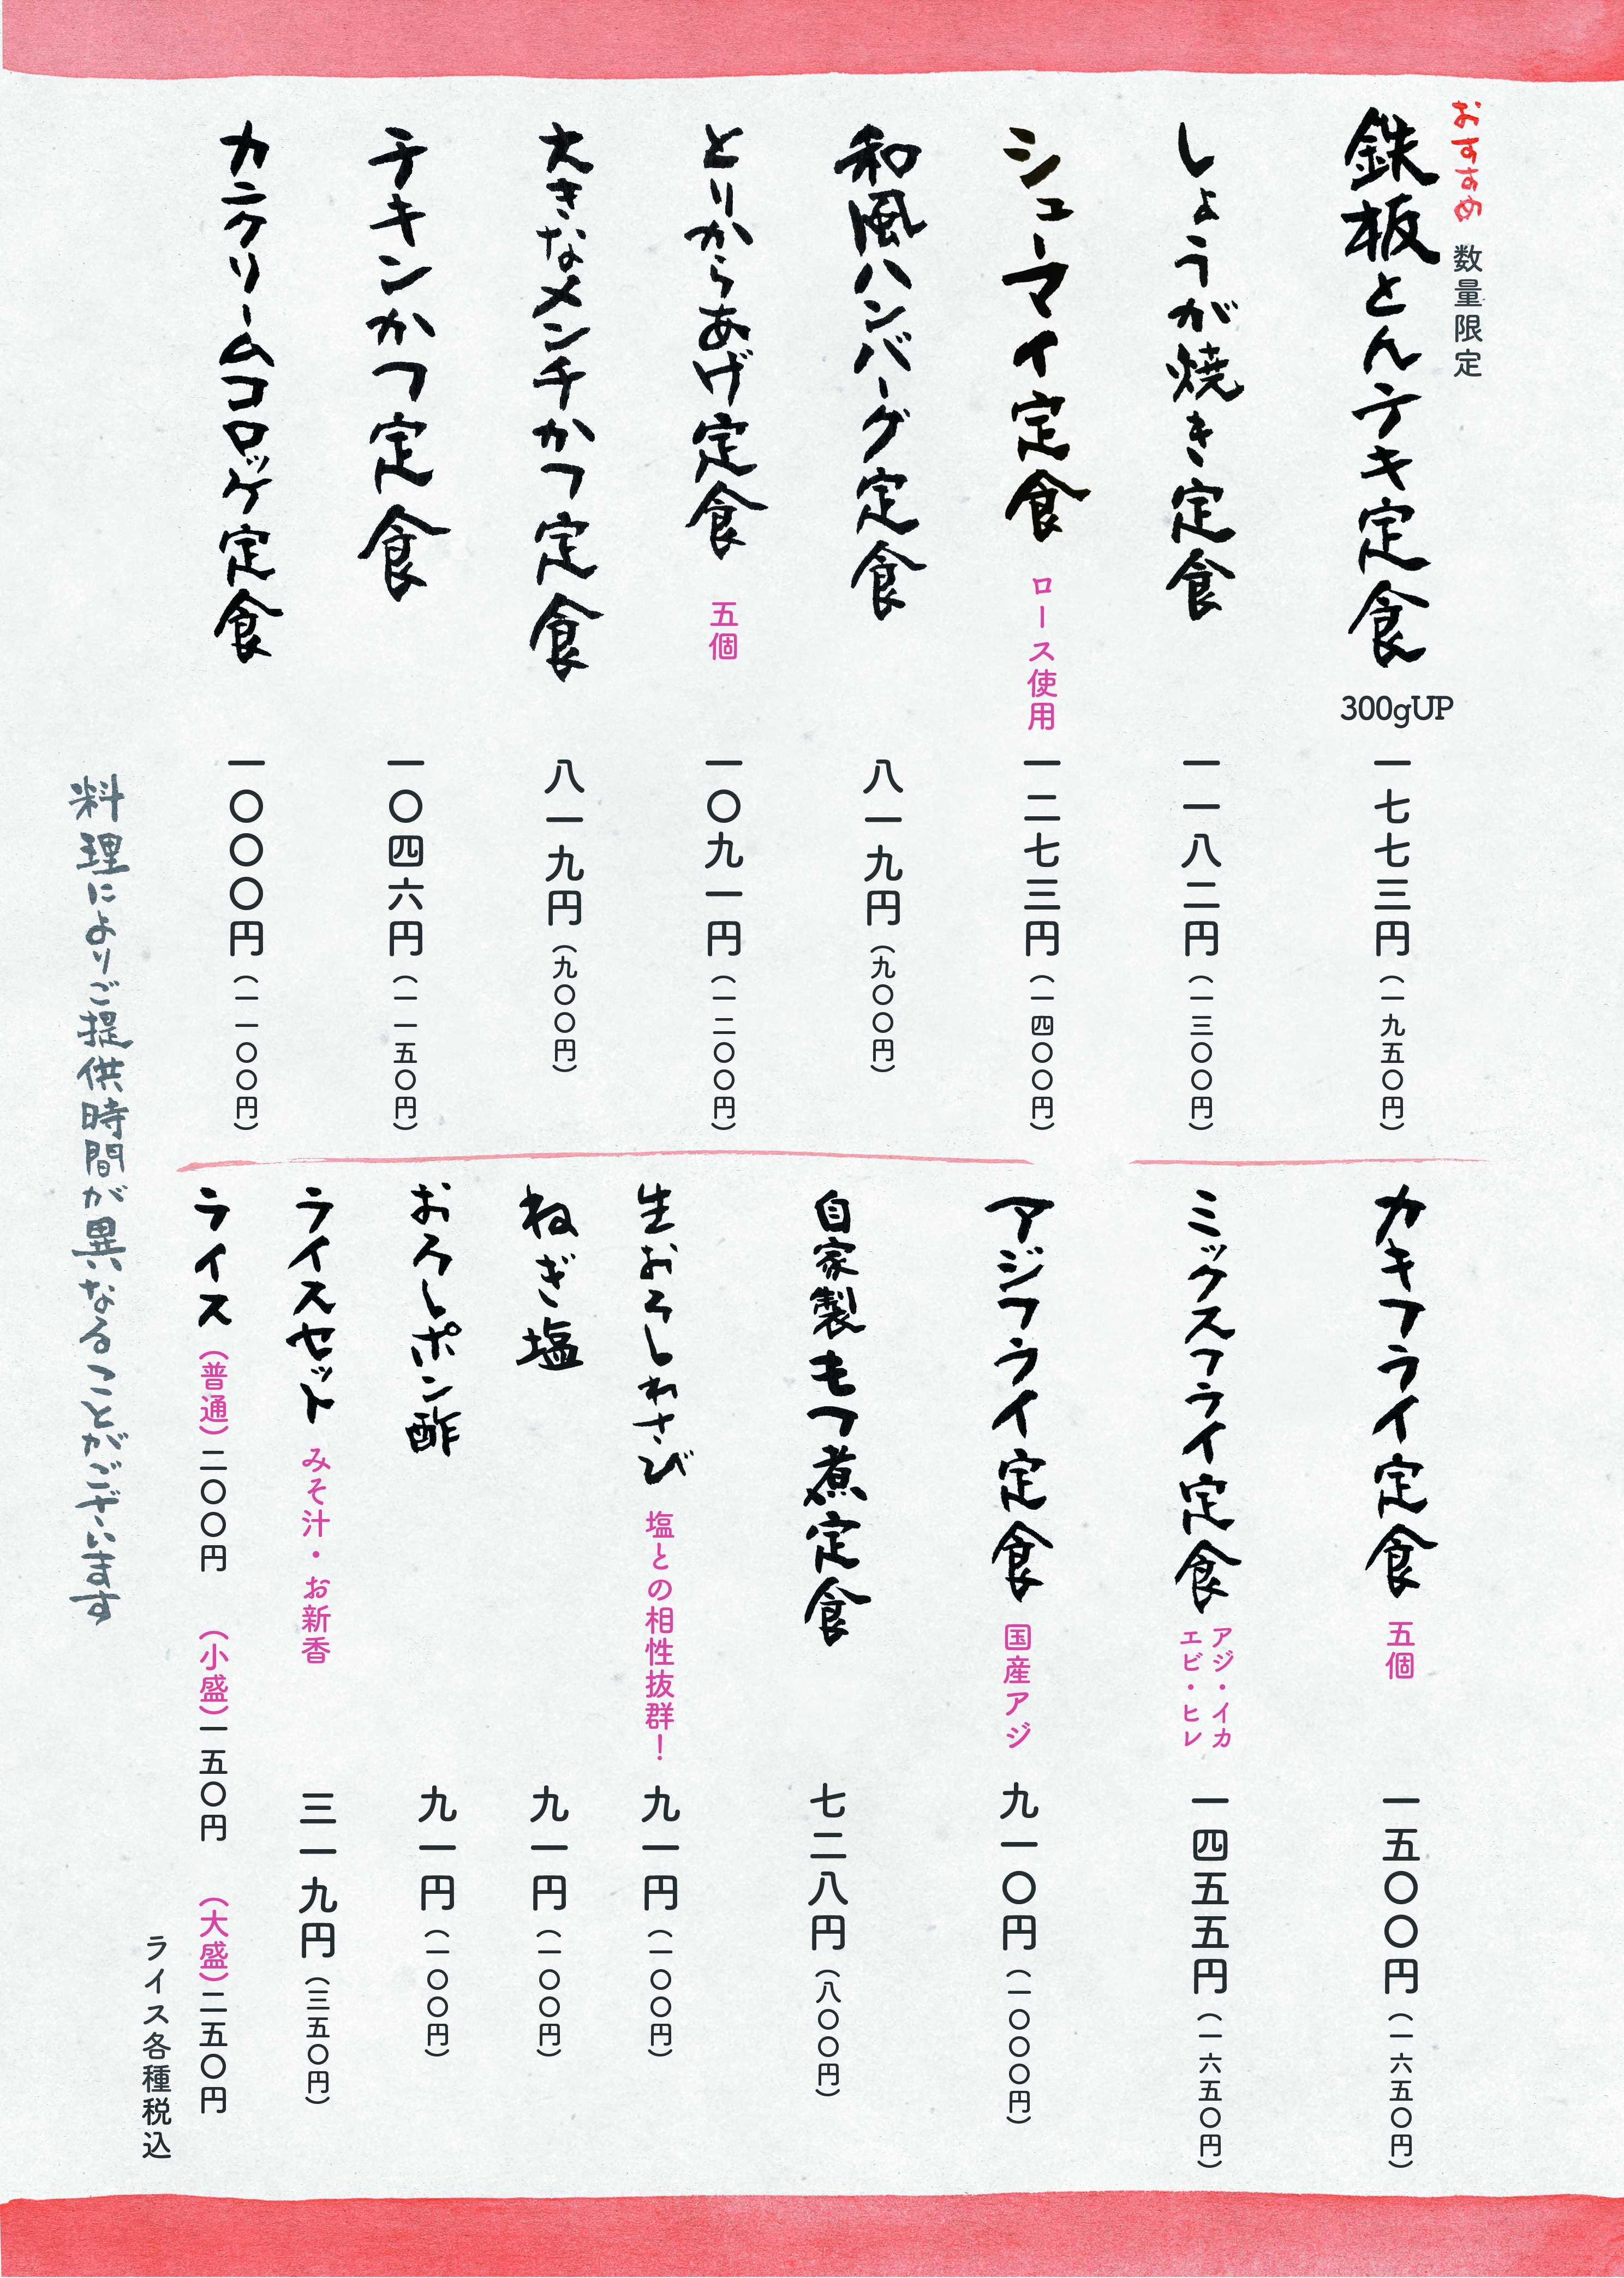 おすすめ 数量限定
鉄板とんテキ定食 300gUP 一七七三円（一九五〇円）
しょうが焼き定食 一一八二円（一三〇〇円）
シューマイ定食 ロース使用 一二七三円（一四〇〇円）
和風ハンバーグ定食 八一九円（九〇〇円）
とりからあげ定食 五個 一〇九一円（一二〇〇円）
大きなメンチかつ定食 八一九円（九〇〇円）
チキンかつ定食 一〇四六円（一一五〇円）
カニクリームコロッケ定食 一〇〇〇円（一一〇〇円）
カキフライ定食 五個 一五〇〇円（一六五〇円）
ミックスフライ定食 アジ・イカ
エビ・ヒレ 一四五五円（一六五〇円）
アジフライ定食 国産アジ 九一〇円（一〇〇〇円）
自家製もつ煮定食 七二八円（八〇〇円）
生おろしわさび 塩との相性抜群！ 九一円（一〇〇円）
ねぎ塩 九一円（一〇〇円）
おろしポン酢 九一円（一〇〇円）
ライスセット みそ汁・お新香 三一九円（三五〇円）
ライス（普通）二〇〇円 （小盛）一五〇円 （大盛）二五〇円
ライス各種税込
料理によりご提供時間が異なることがございます